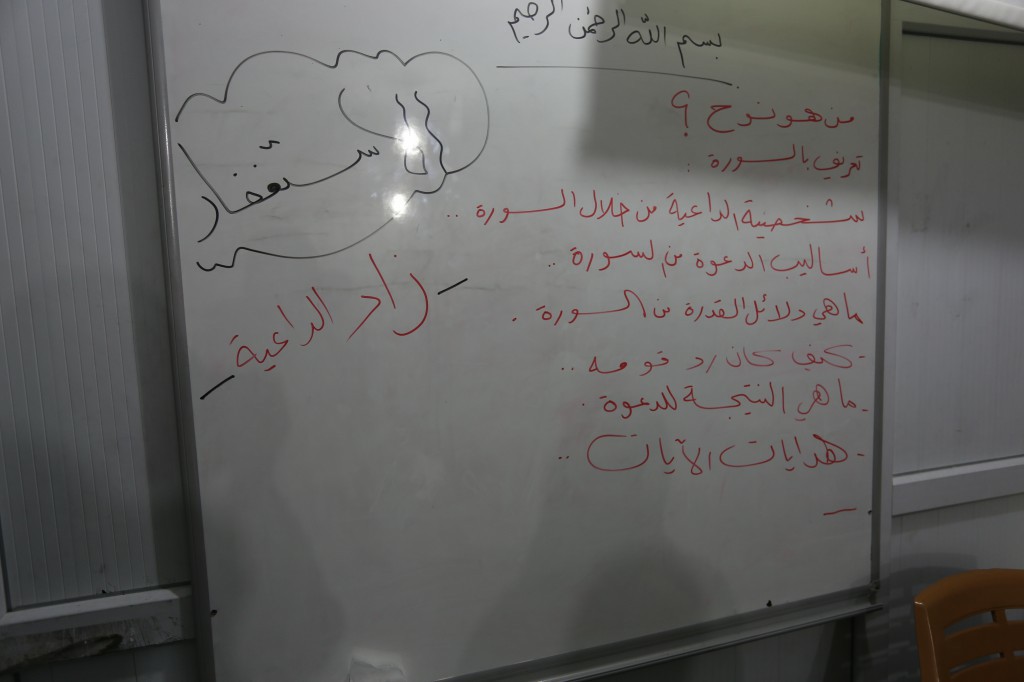 بسم الله الرحمن الرحيم
من هو نوح ؟
تعريف بالسورة :
شخصية الداعية من خلال السورة ..
أساليب الدعوة من لسورة ..
ما هي دلائل القدرة من السورة .
- كيف كان رد قومه ..
- ما هي النتيجة للدعوة .
- هدايات الآيات ..
الاستغفار
- زاد الداعية -